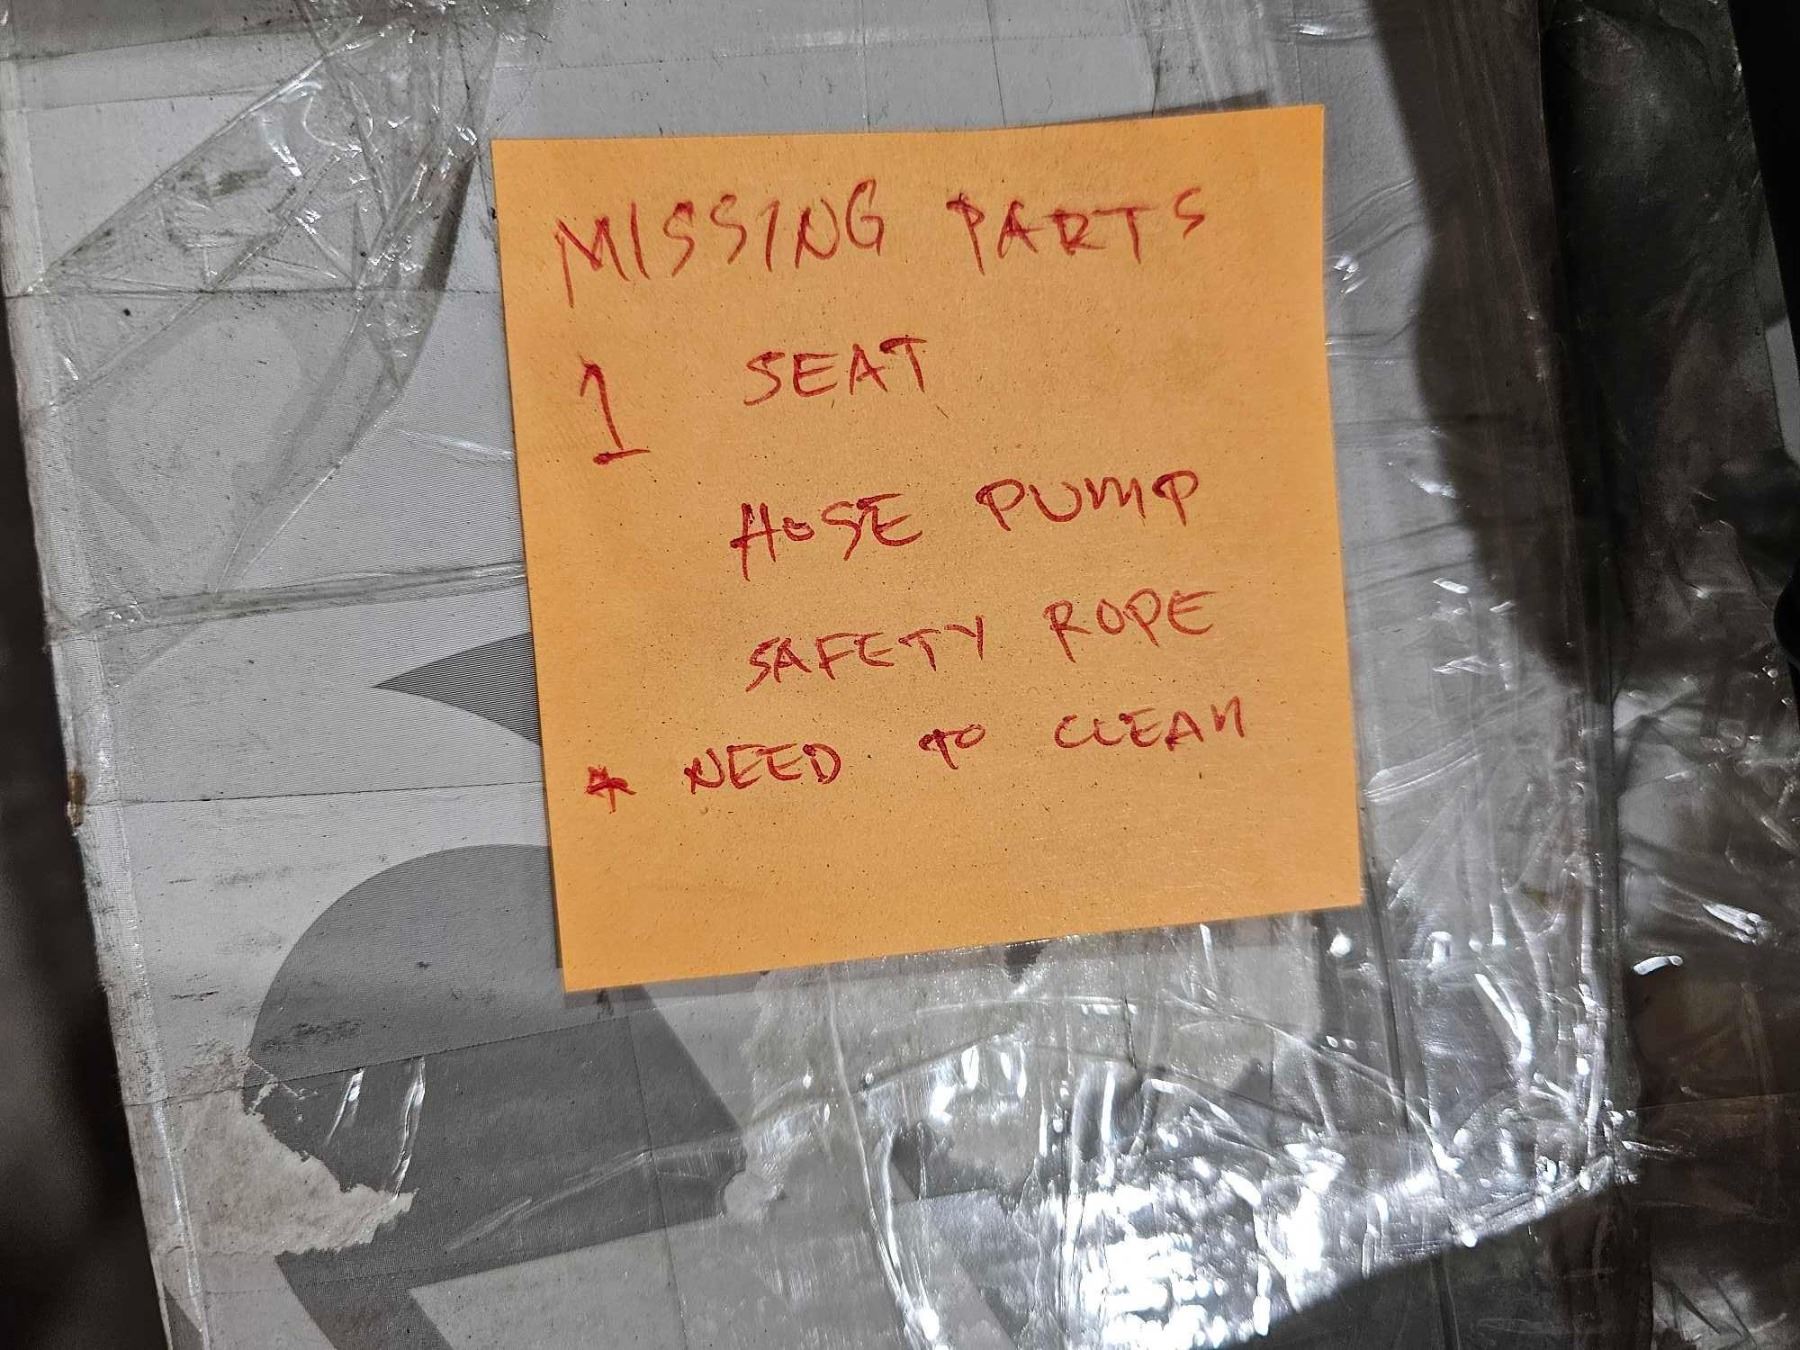 MISSING PARTS
1 SEAT
HOSE PUMP
SAFETY ROPE
* NEED TO CLEAN